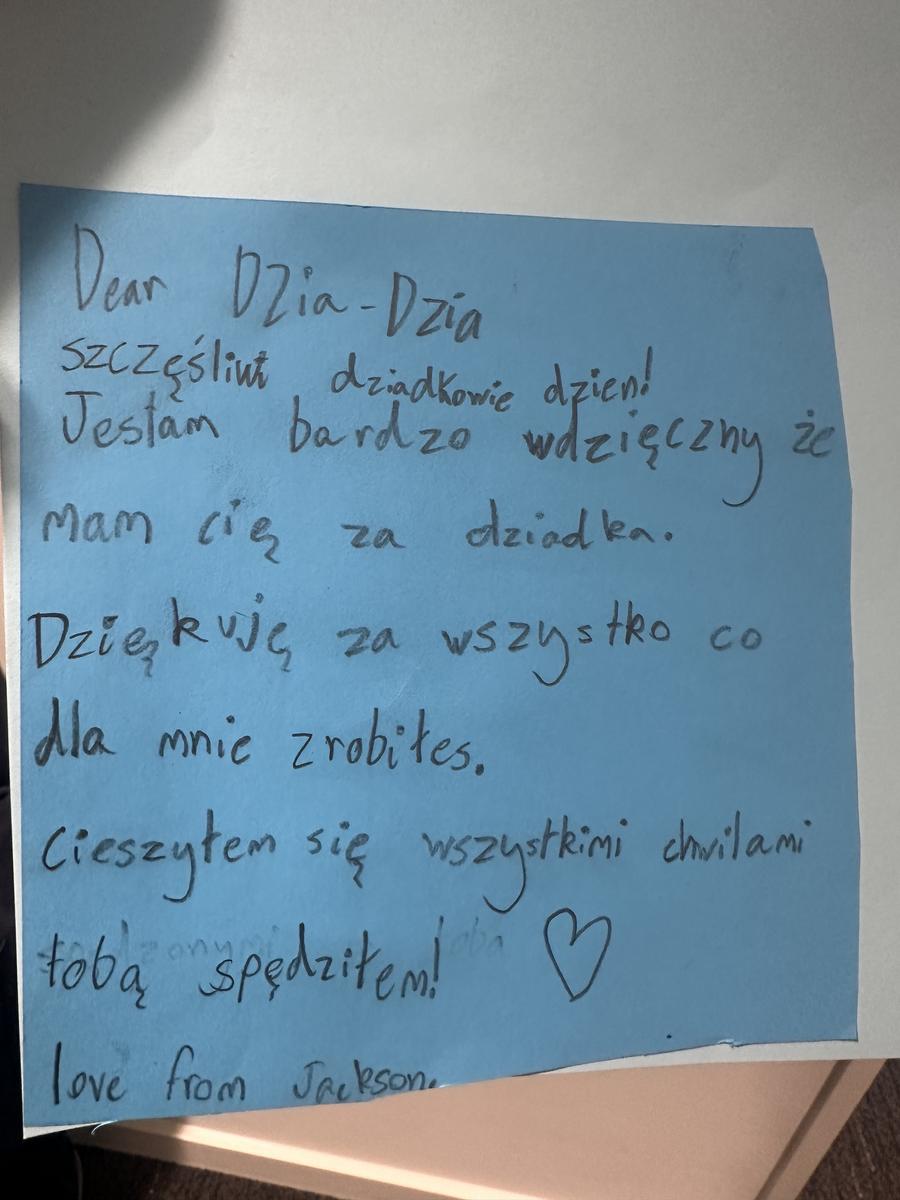 Dear Dzia-Dzia
szczęśliwi dziadkowie dzien!
Jestam bardzo wdzięczny że
mam cię za dziadka.
Dziękuję za wszystko co
dla mnie zrobiłes.
Cieszyłem się wszystkimi chwilami
tobą spędziłem!
love from Jackson.